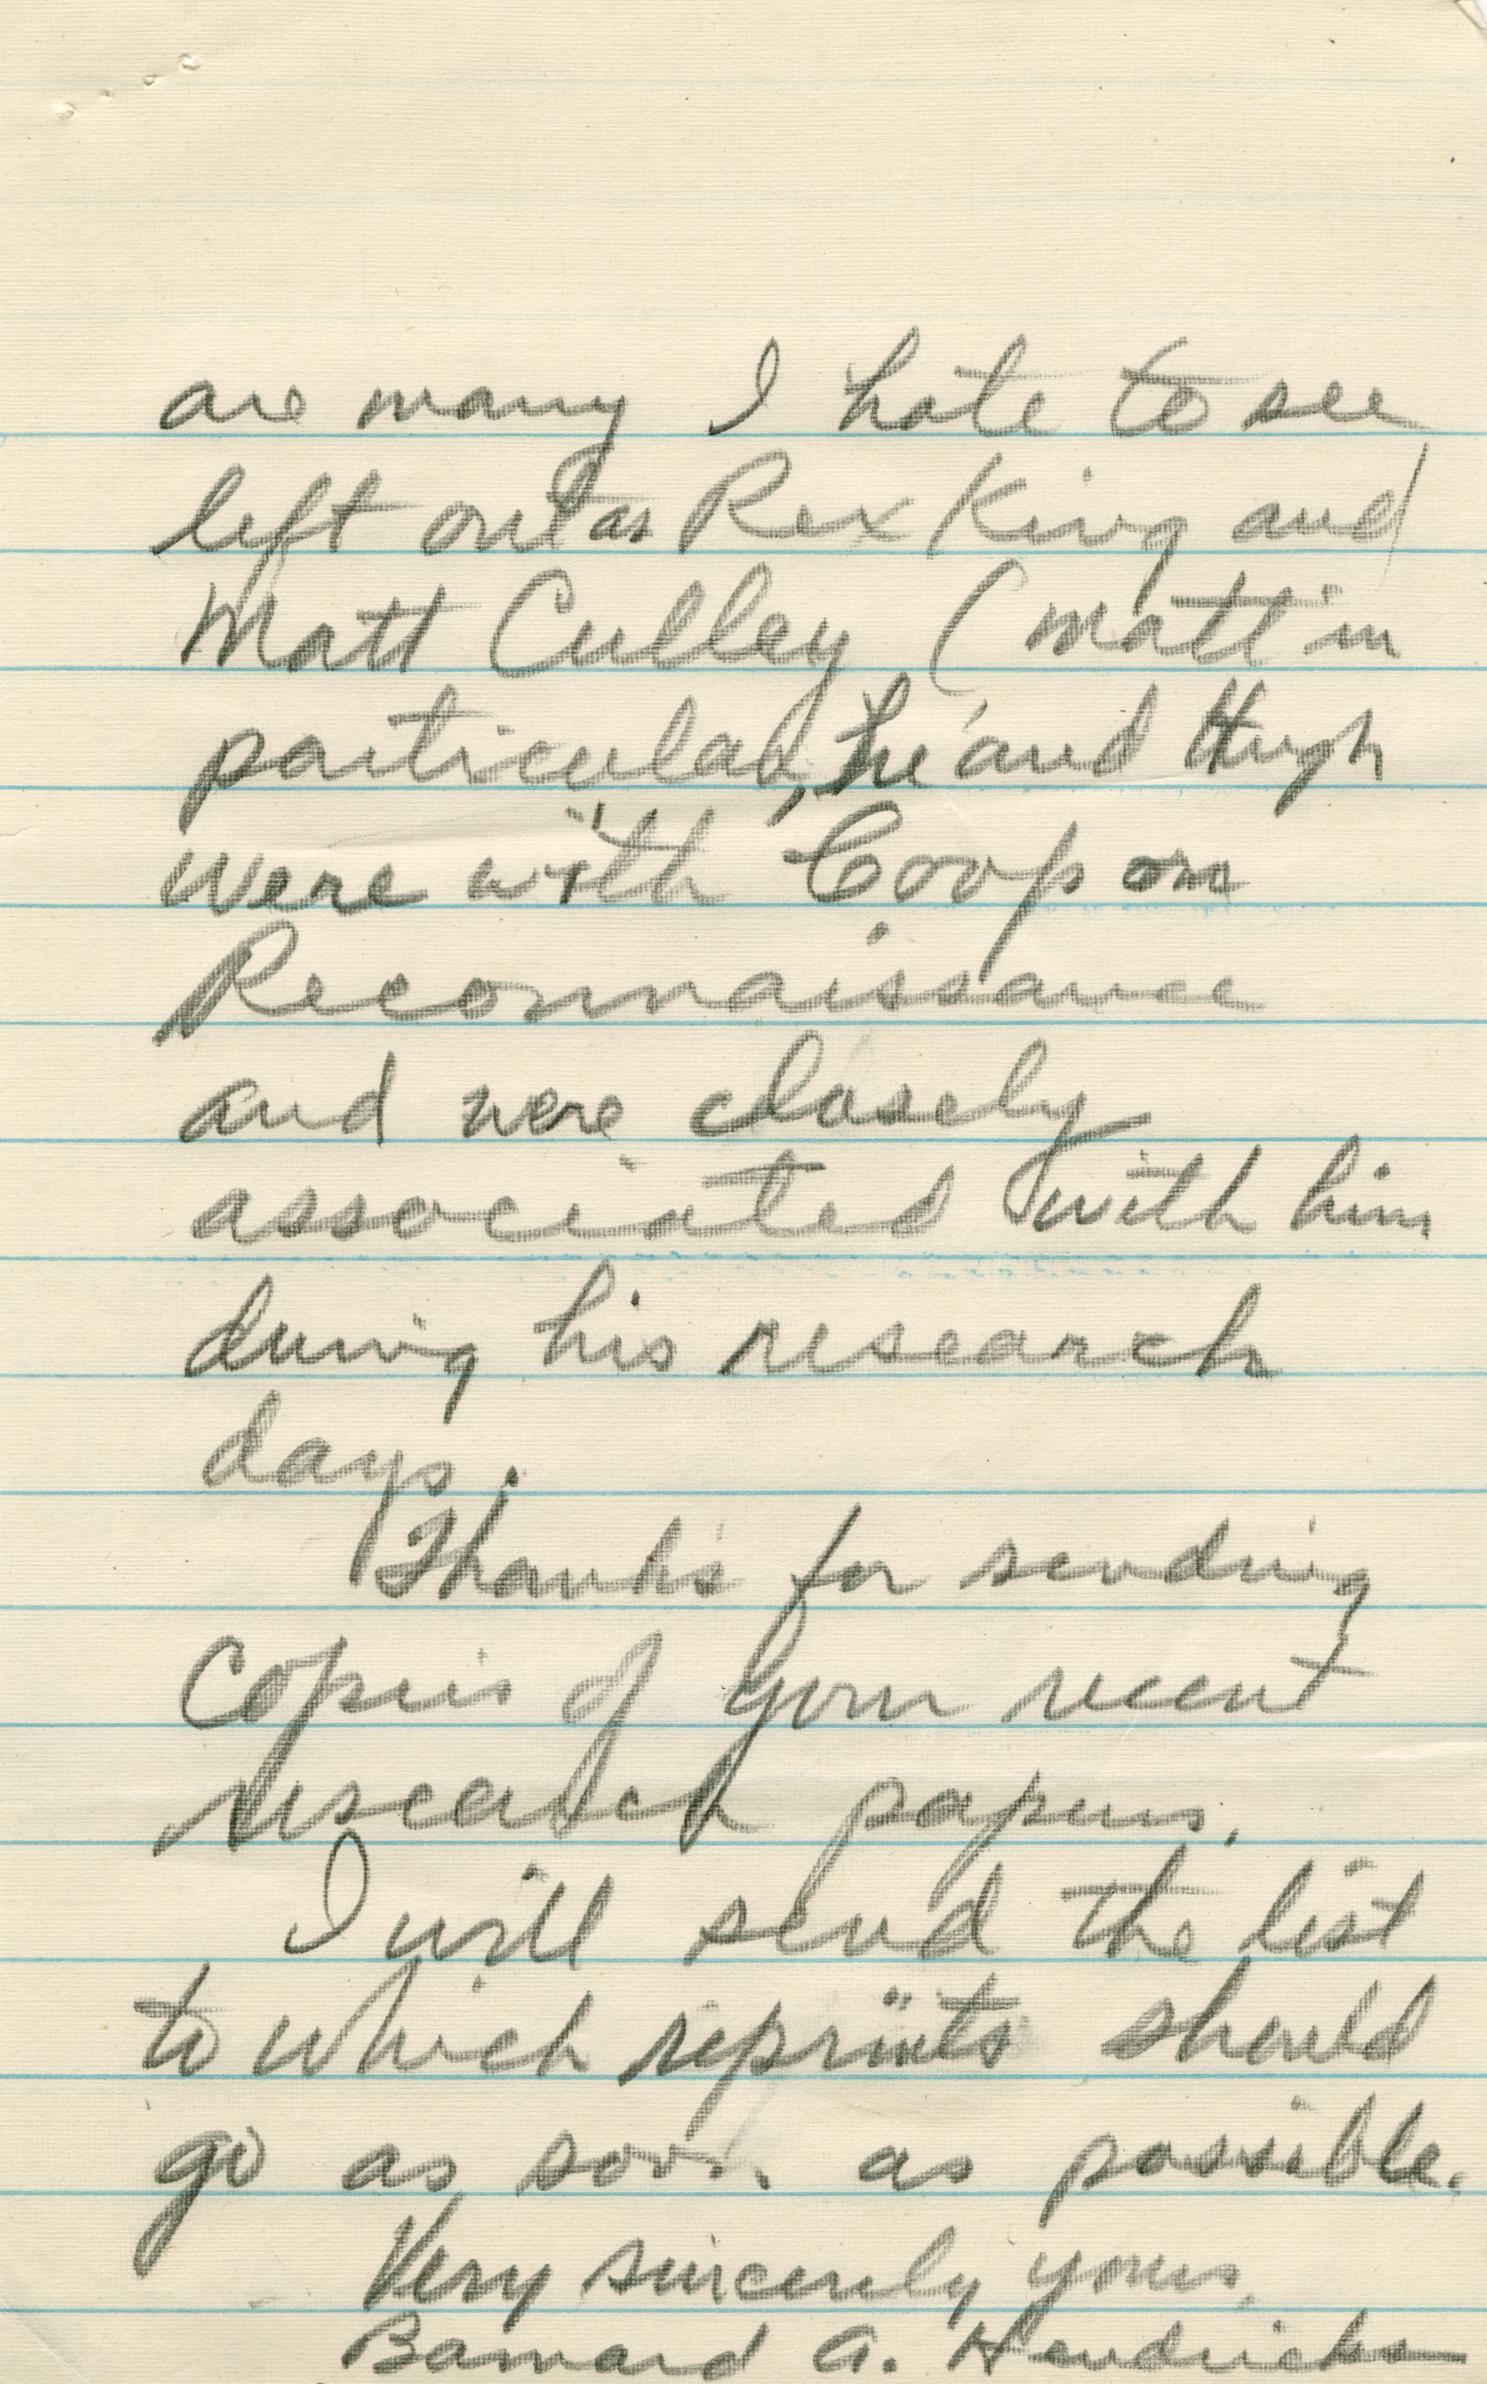 are many I hate to see
left out as Rex King and
Matt Culley (Matt in
particular, he and Hugh
were with Coop on
Reconnaissance
and were closely
associated with him
during his research
days.
Thanks for sending
Copies of your recent
research papers.
I will send the list
to which reprints should
go as soon as possible.
Very sincerely yours,
Barnard A. Hendricks